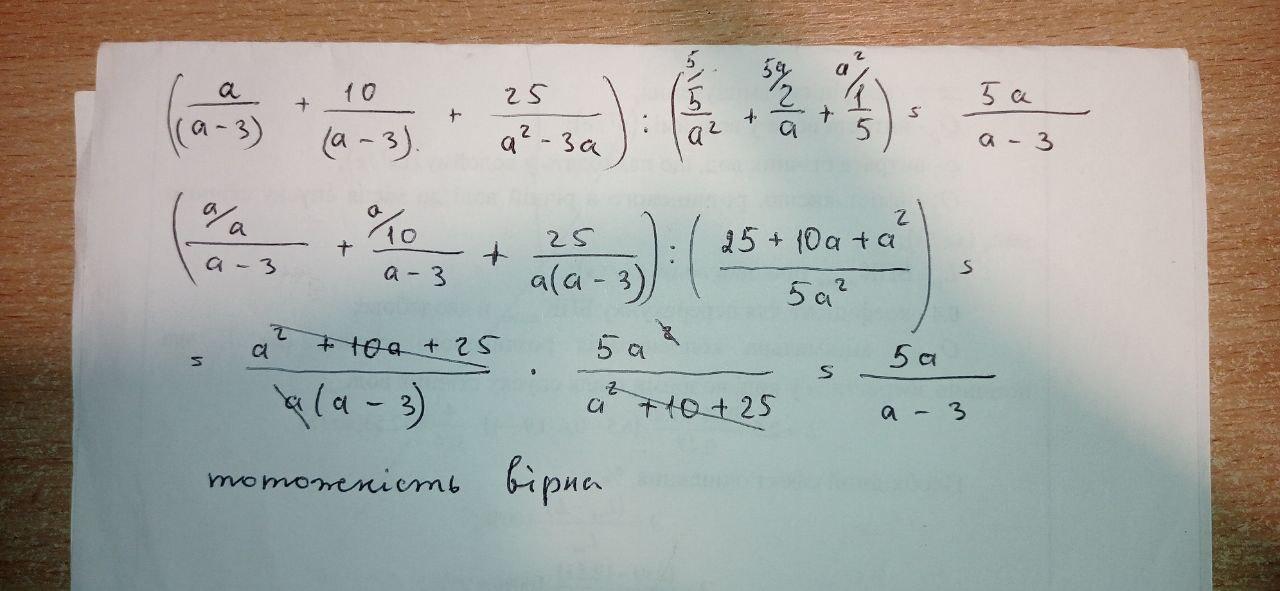 (a/(a-3) + 10/(a-3). + 25/(a²-3a)) : (⁵/5/a² + ⁵ᵃ/2/a + ᵃ²/1/5) = 5a/(a-3)
(ᵃ/a/(a-3) + ᵃ/10/(a-3) + 25/(a(a-3))) : ((25+10a+a²)/5a²) =
= (a²+10a+25)/(a(a-3)) · 5a²/(a²+10+25) = 5a/(a-3)
тотожність вірна